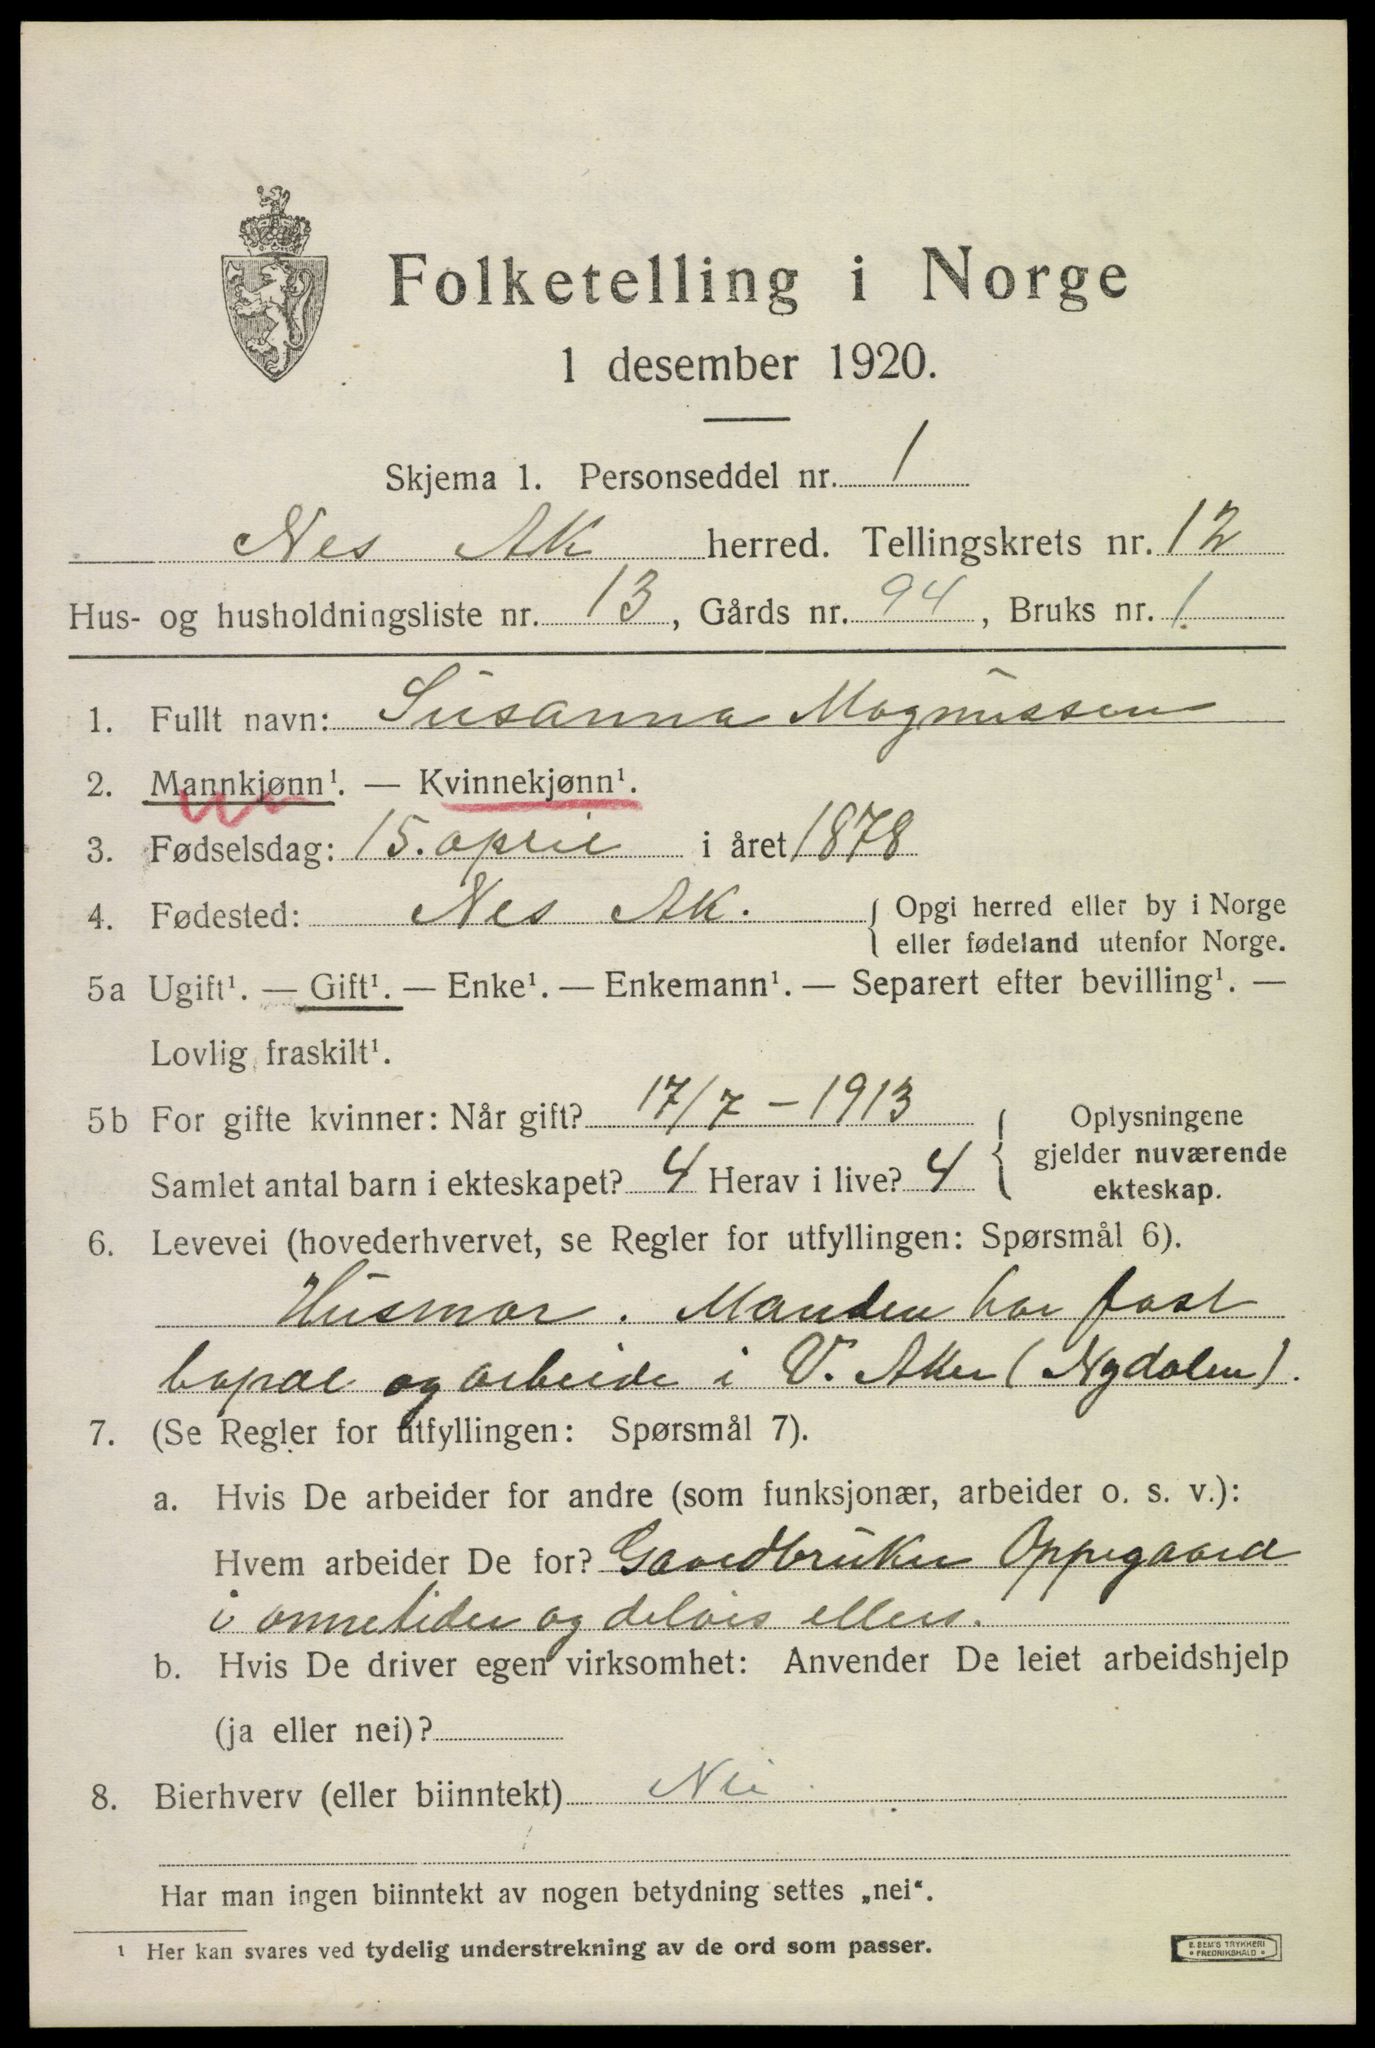 Folketelling i Norge
1 desember 1920.
Skjema 1. Personseddel nr. 1
Nes AK herred. Tellingskrets nr. 12
Hus- og husholdningsliste nr. 13, Gårds nr. 94, Bruks nr. 1
1. Fullt navn: Susanna Magnussen
2. Mannkjønn¹. — Kvinnekjønn¹.
3. Fødselsdag: 15. april i året 1878
4. Fødested: Nes AK. { Opgi herred eller by i Norge
eller fødeland utenfor Norge.
5a Ugift¹. — Gift¹. — Enke¹. — Enkemann¹. — Separert efter bevilling¹. —
Lovlig fraskilt¹.
5b For gifte kvinner: Når gift? 17/7 – 1913
Samlet antal barn i ekteskapet? 4 Herav i live? 4
{ Oplysningene
gjelder nuværende
ekteskap.
6. Levevei (hovederhvervet, se Regler for utfyllingen: Spørsmål 6).
Husmor. Manden har fast
bopæl og arbeide i V. Aker (Nydalen).
7. (Se Regler for utfyllingen: Spørsmål 7).
a. Hvis De arbeider for andre (som funksjonær, arbeider o. s. v.):
Hvem arbeider De for? Gaardbruker Oppegaard
i onnetider og delvis ellers.
b. Hvis De driver egen virksomhet: Anvender De leiet arbeidshjelp
(ja eller nei)?
8. Bierhverv (eller biinntekt) Nei.
Har man ingen biinntekt av nogen betydning settes „nei“.
¹ Her kan svares ved tydelig understrekning av de ord som passer.
E. SEM'S TRYKKERI
• FREDRIKSHALD •